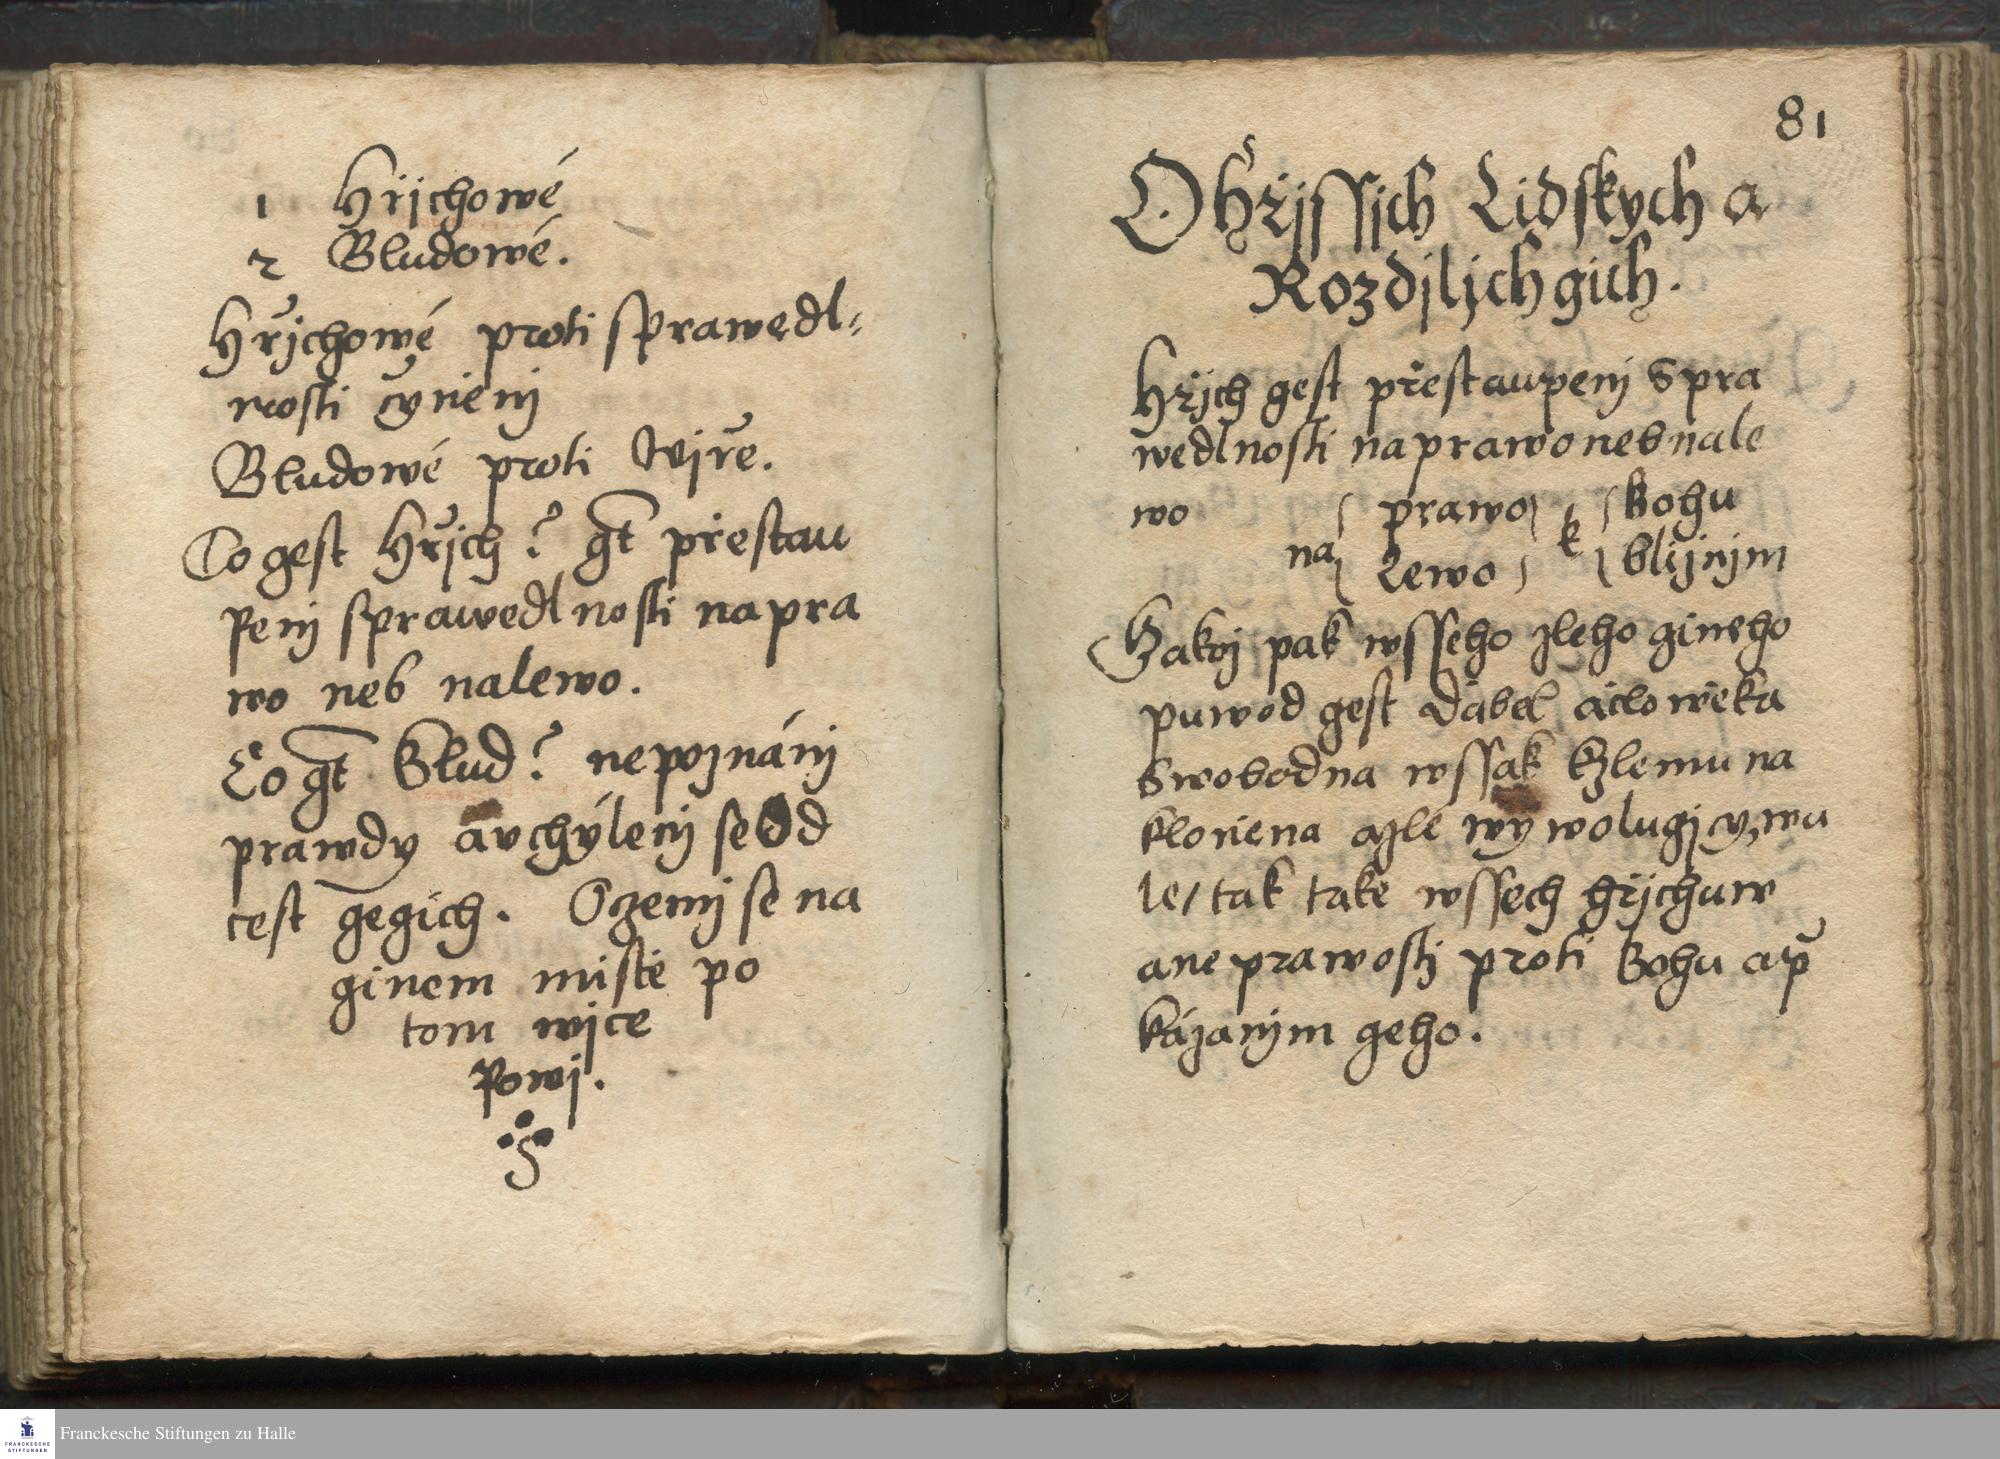 1 Hřjchowé
2 Bludowé.
Hřjchowé proti sprawedl⸗
nosti čyněnj
Bludowé proti Wjře.
Co gest Hřjch? gt přestau
penj sprawedlnosti napra
wo neb nalewo.
Co gt Blud? nepoznánj
prawdy auchýlenj se Od
cest gegich. Oczemž se na
ginem mistě po
tom wjce
Powj.
81
O Hřjssjch Lidskych a
Rozdjljch gich.
Hřjch gest přestaupenj Spra
wedlnosti naprawo neb nale
wo
na prawo k Bohu
Lewo bližnjm
Jakož pak wsseho zleho gineho
puwod gest Ďábel ačlowěka
Swobodna wssak kzlemu na
kloněna azle wywolugjcy, wu
le/ tak take wssech hřjchuw
aneprawostj proti Bohu ap̃
kázanjm geho.
FRANCKESCHE
STIFTUNGEN
Franckesche Stiftungen zu Halle